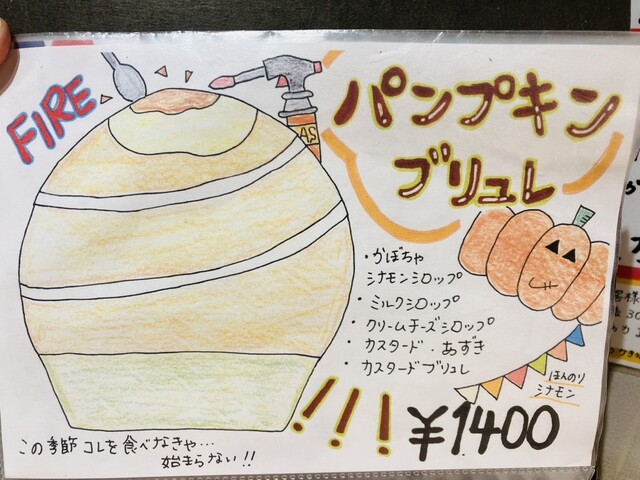 FIRE
AS
パンプキン
ブリュレ
・かぼちゃ
シナモンシロップ
・ミルクシロップ
・クリームチーズシロップ
・カスタード・あずき
・カスタードブリュレ
ほんのり
シナモン
!!!
¥1400
この季節コレを食べなきゃ…
始まらない!!